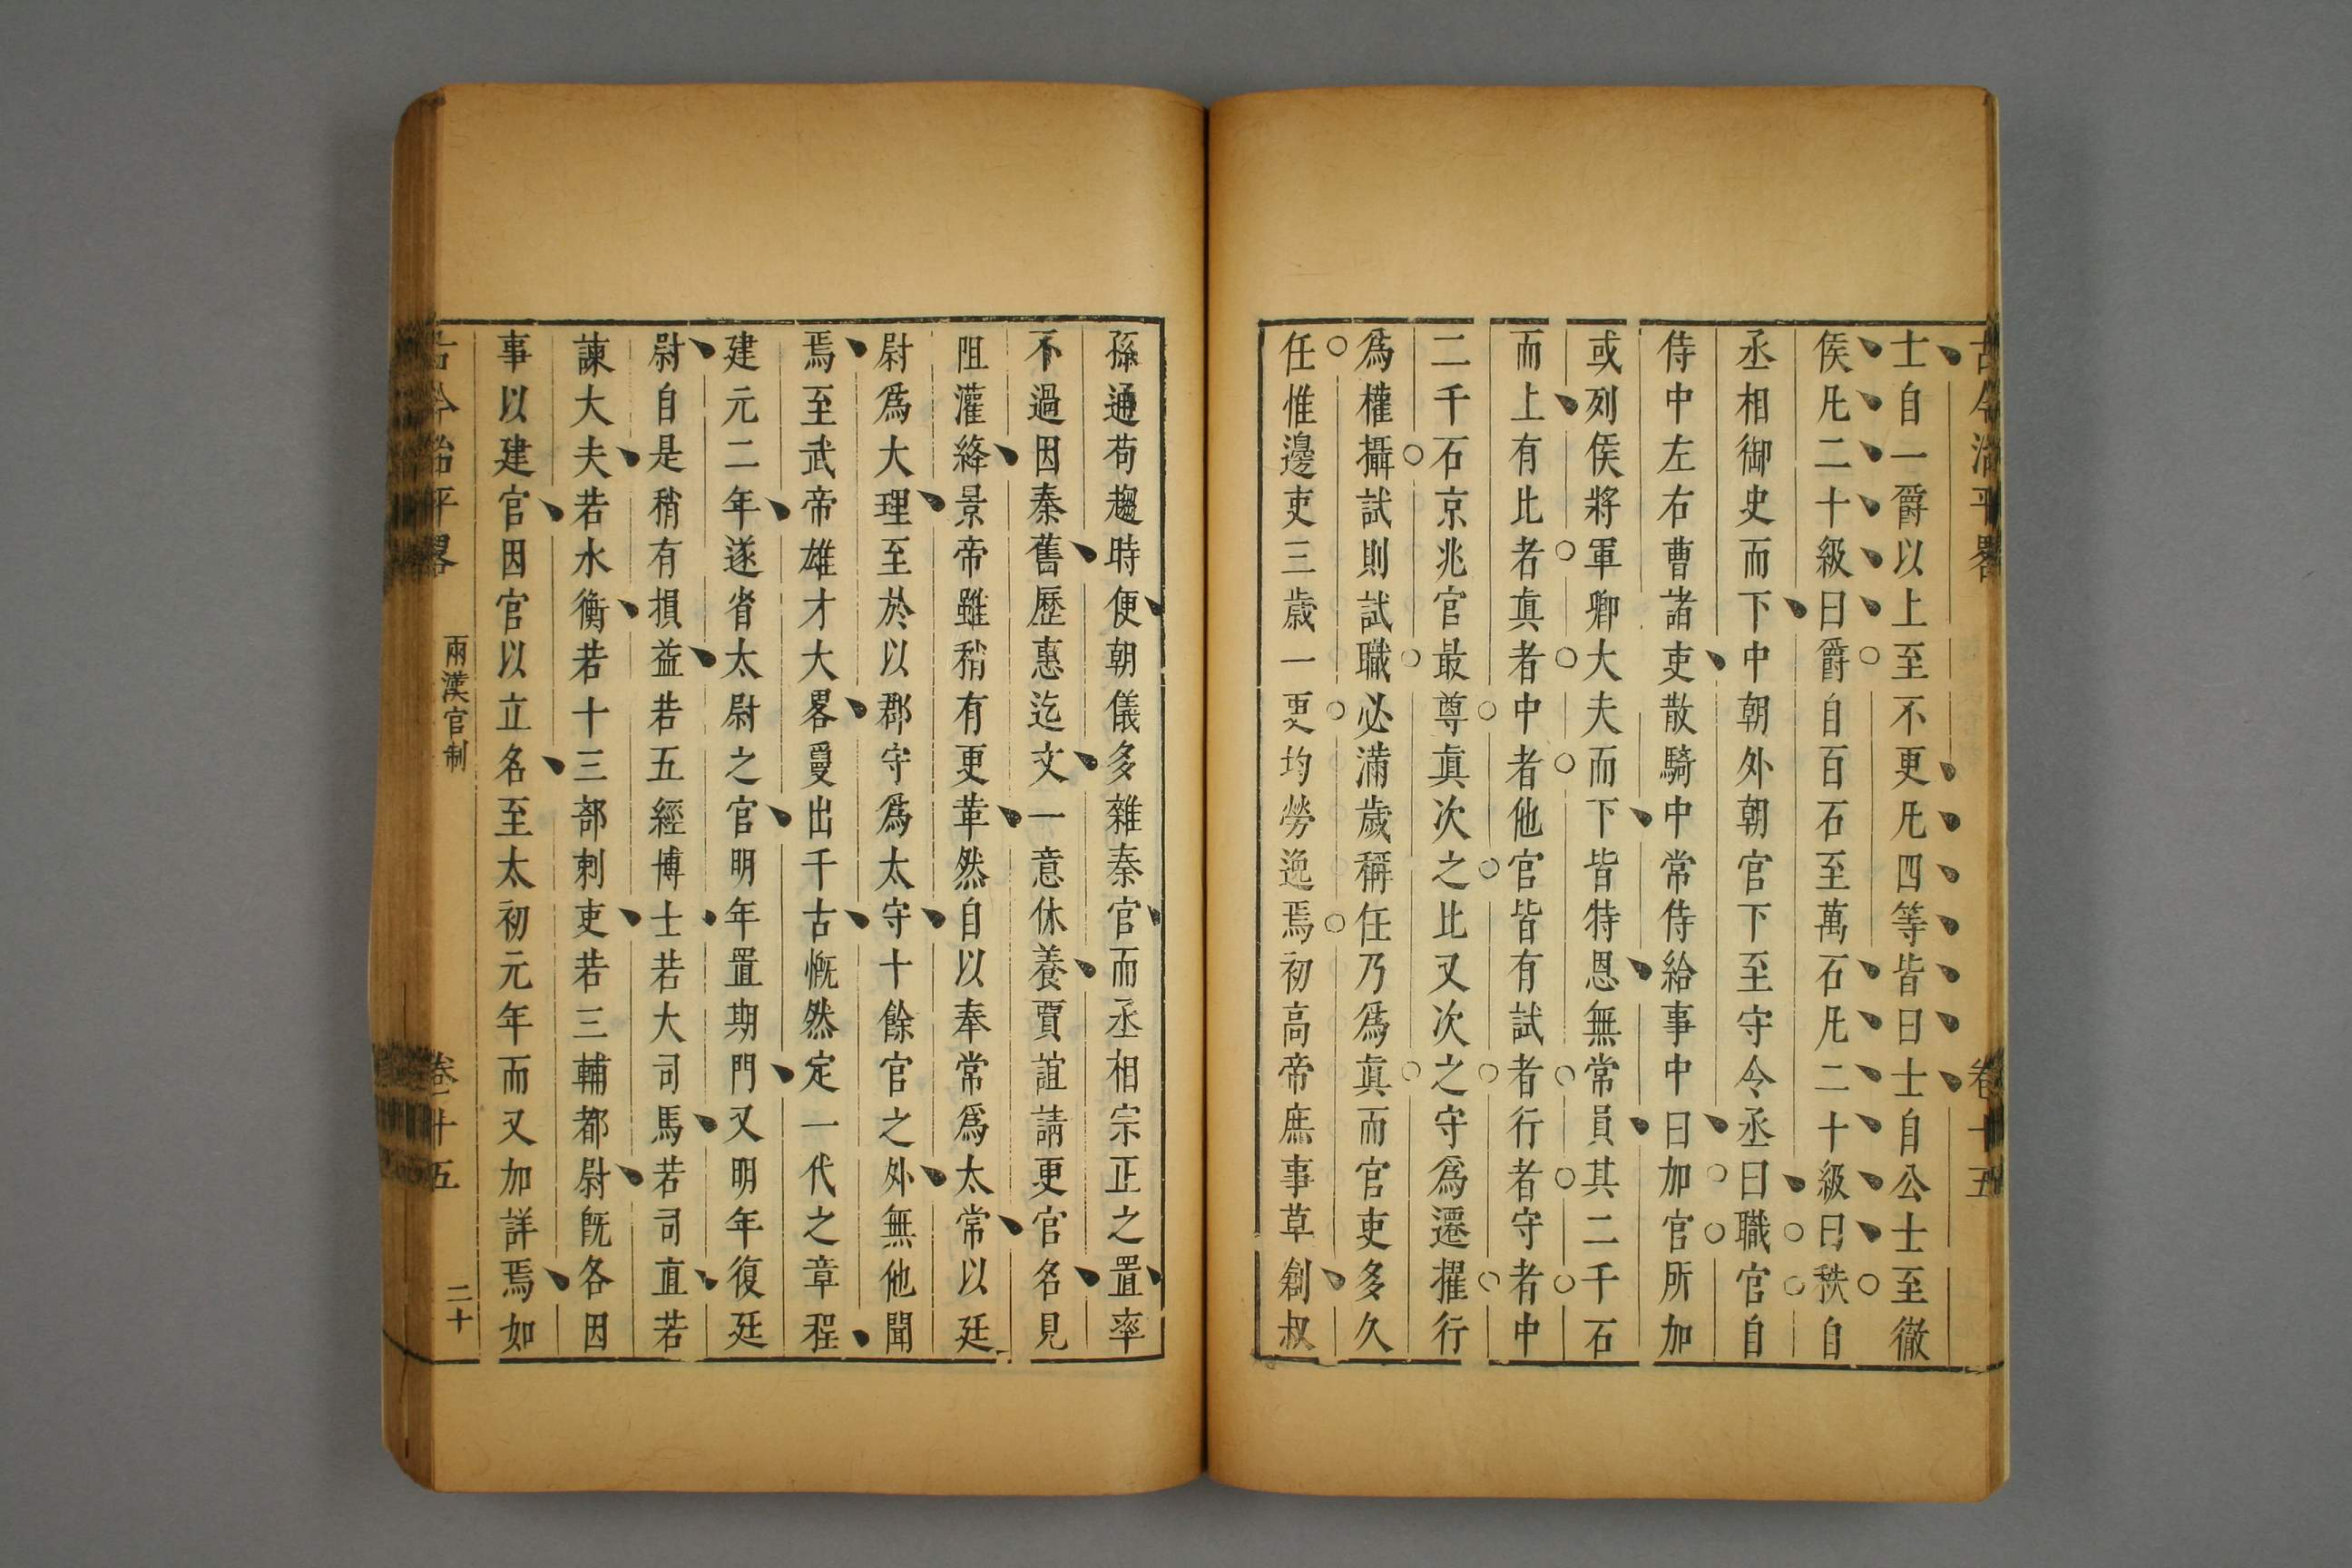 古今治平畧 卷十五
士自一爵以上至不更凡四等皆曰士自公士至徹
侯凡二十級曰爵自百石至萬石凡二十級曰秩自
丞相御史而下中朝外朝官下至守令丞曰職官自
侍中左右曹諸吏散騎中常侍給事中曰加官所加
或列侯將軍卿大夫而下皆特恩無常員其二千石
而上有比者真者中者他官皆有試者行者守者中
二千石京兆官最尊真次之比又次之守爲遷擢行
爲權攝試則試職必滿歲稱任乃爲真而官吏多久
任惟邊吏三歲一更均勞逸焉初高帝庶事草創叔
孫通苟趨時便朝儀多雜秦官而丞相宗正之置率
不過因秦舊歷惠迄文一意休養賈誼請更官名見
阻灌絳景帝雖稍有更革然自以奉常爲太常以廷
尉爲大理至於以郡守爲太守十餘官之外無他聞
焉至武帝雄才大畧夐出千古慨然定一代之章程
建元二年遂省太尉之官明年置期門又明年復廷
尉自是稍有損益若五經博士若大司馬若司直若
諫大夫若水衡若十三部刺吏若三輔都尉旣各因
事以建官因官以立名至太初元年而又加詳焉如
古今治平畧 兩漢官制 卷十五 二十